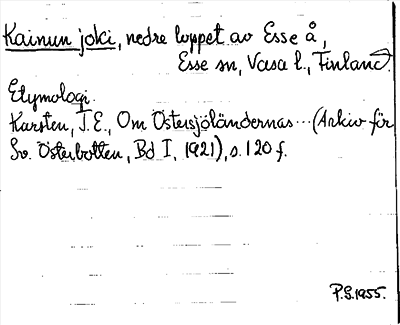 Kainun joki, nedre loppet av Esse å,
Esse sn, Vasa l., Finland.
Etymologi.
Karsten, T.E., Om Östersjöländernas... (Arkiv för
Sv. Österbotten, Bd I, 1921), s. 120 f.
P.S. 1955.